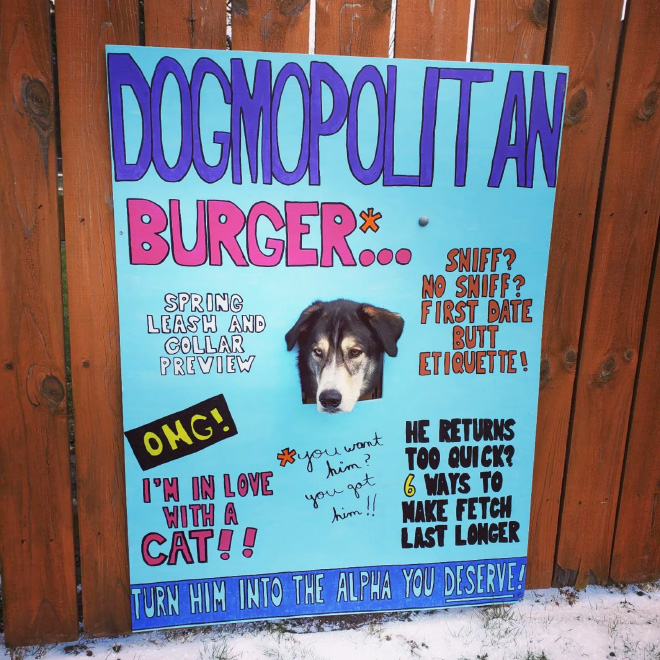 DOGMOPOLITAN
BURGER*...
SPRING
LEASH AND
COLLAR
PREVIEW
SNIFF?
NO SNIFF?
FIRST DATE
BUTT
ETIQUETTE!
OMG!
I'M IN LOVE
WITH A
CAT!!
*you want
him?
you got
him!!
HE RETURNS
TOO QUICK?
6 WAYS TO
MAKE FETCH
LAST LONGER
TURN HIM INTO THE ALPHA YOU DESERVE!